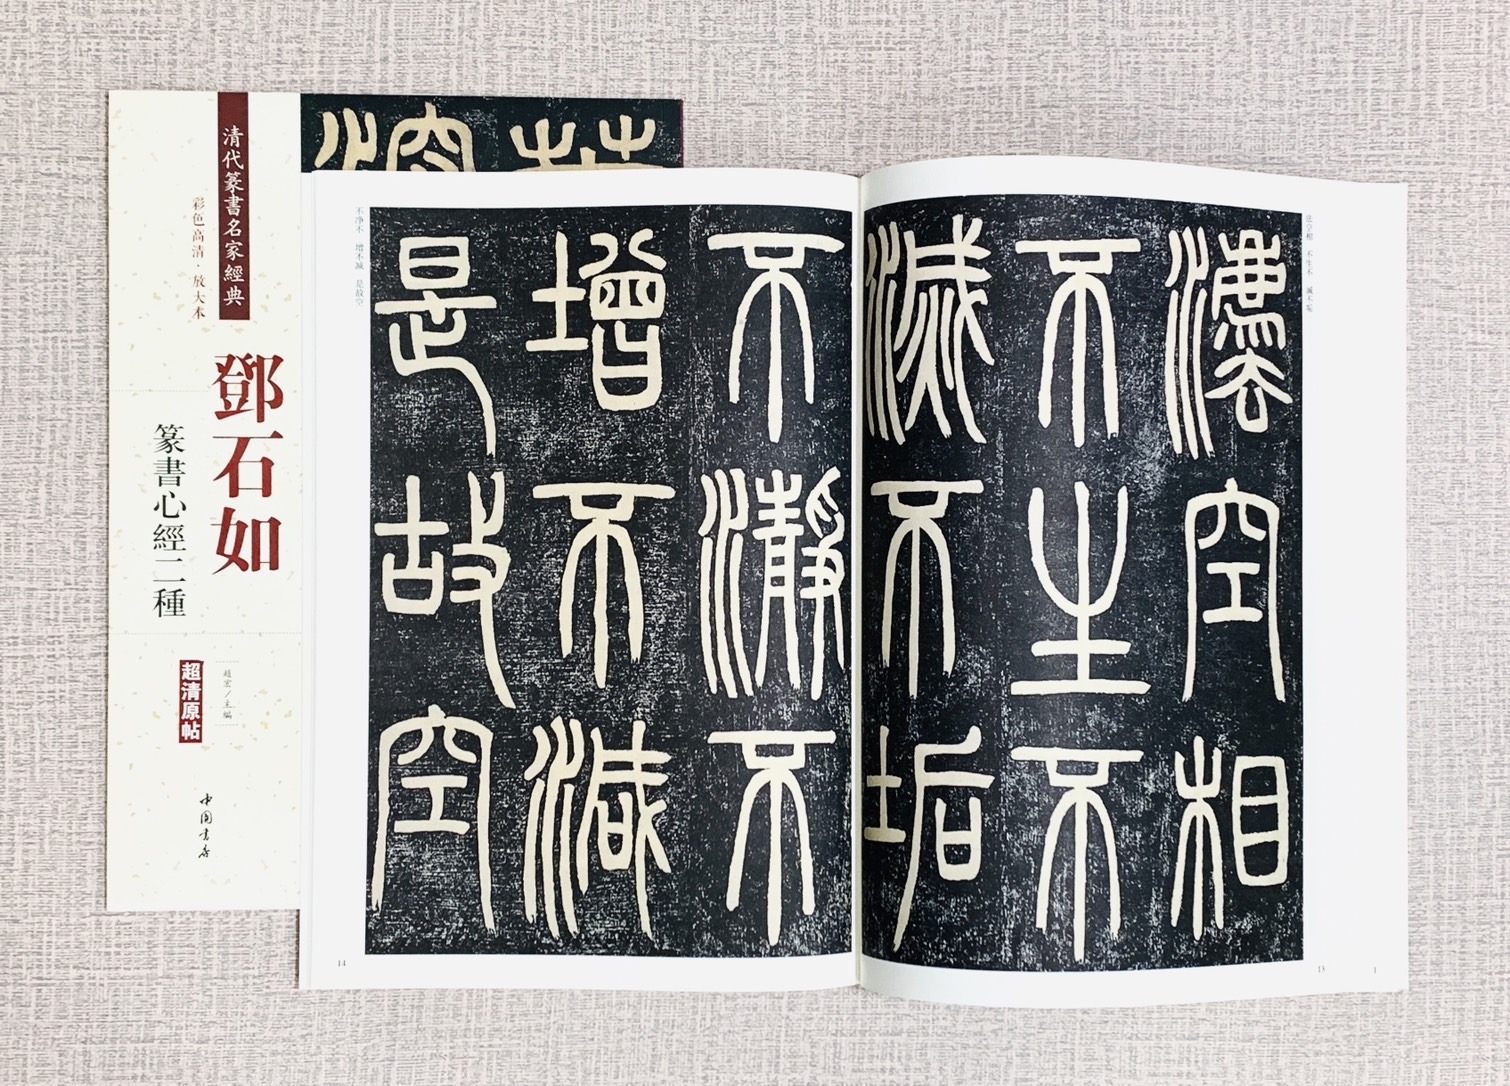 清代篆書名家經典
彩色高清·放大本
鄧石如
篆書心經二種
超清原帖
趙宏／主編
中國書店
法空相 不生不 滅不垢
灋空相
不生不
滅不垢
13
不瀞不
增不減
是故空
不净不 增不減 是故空
14